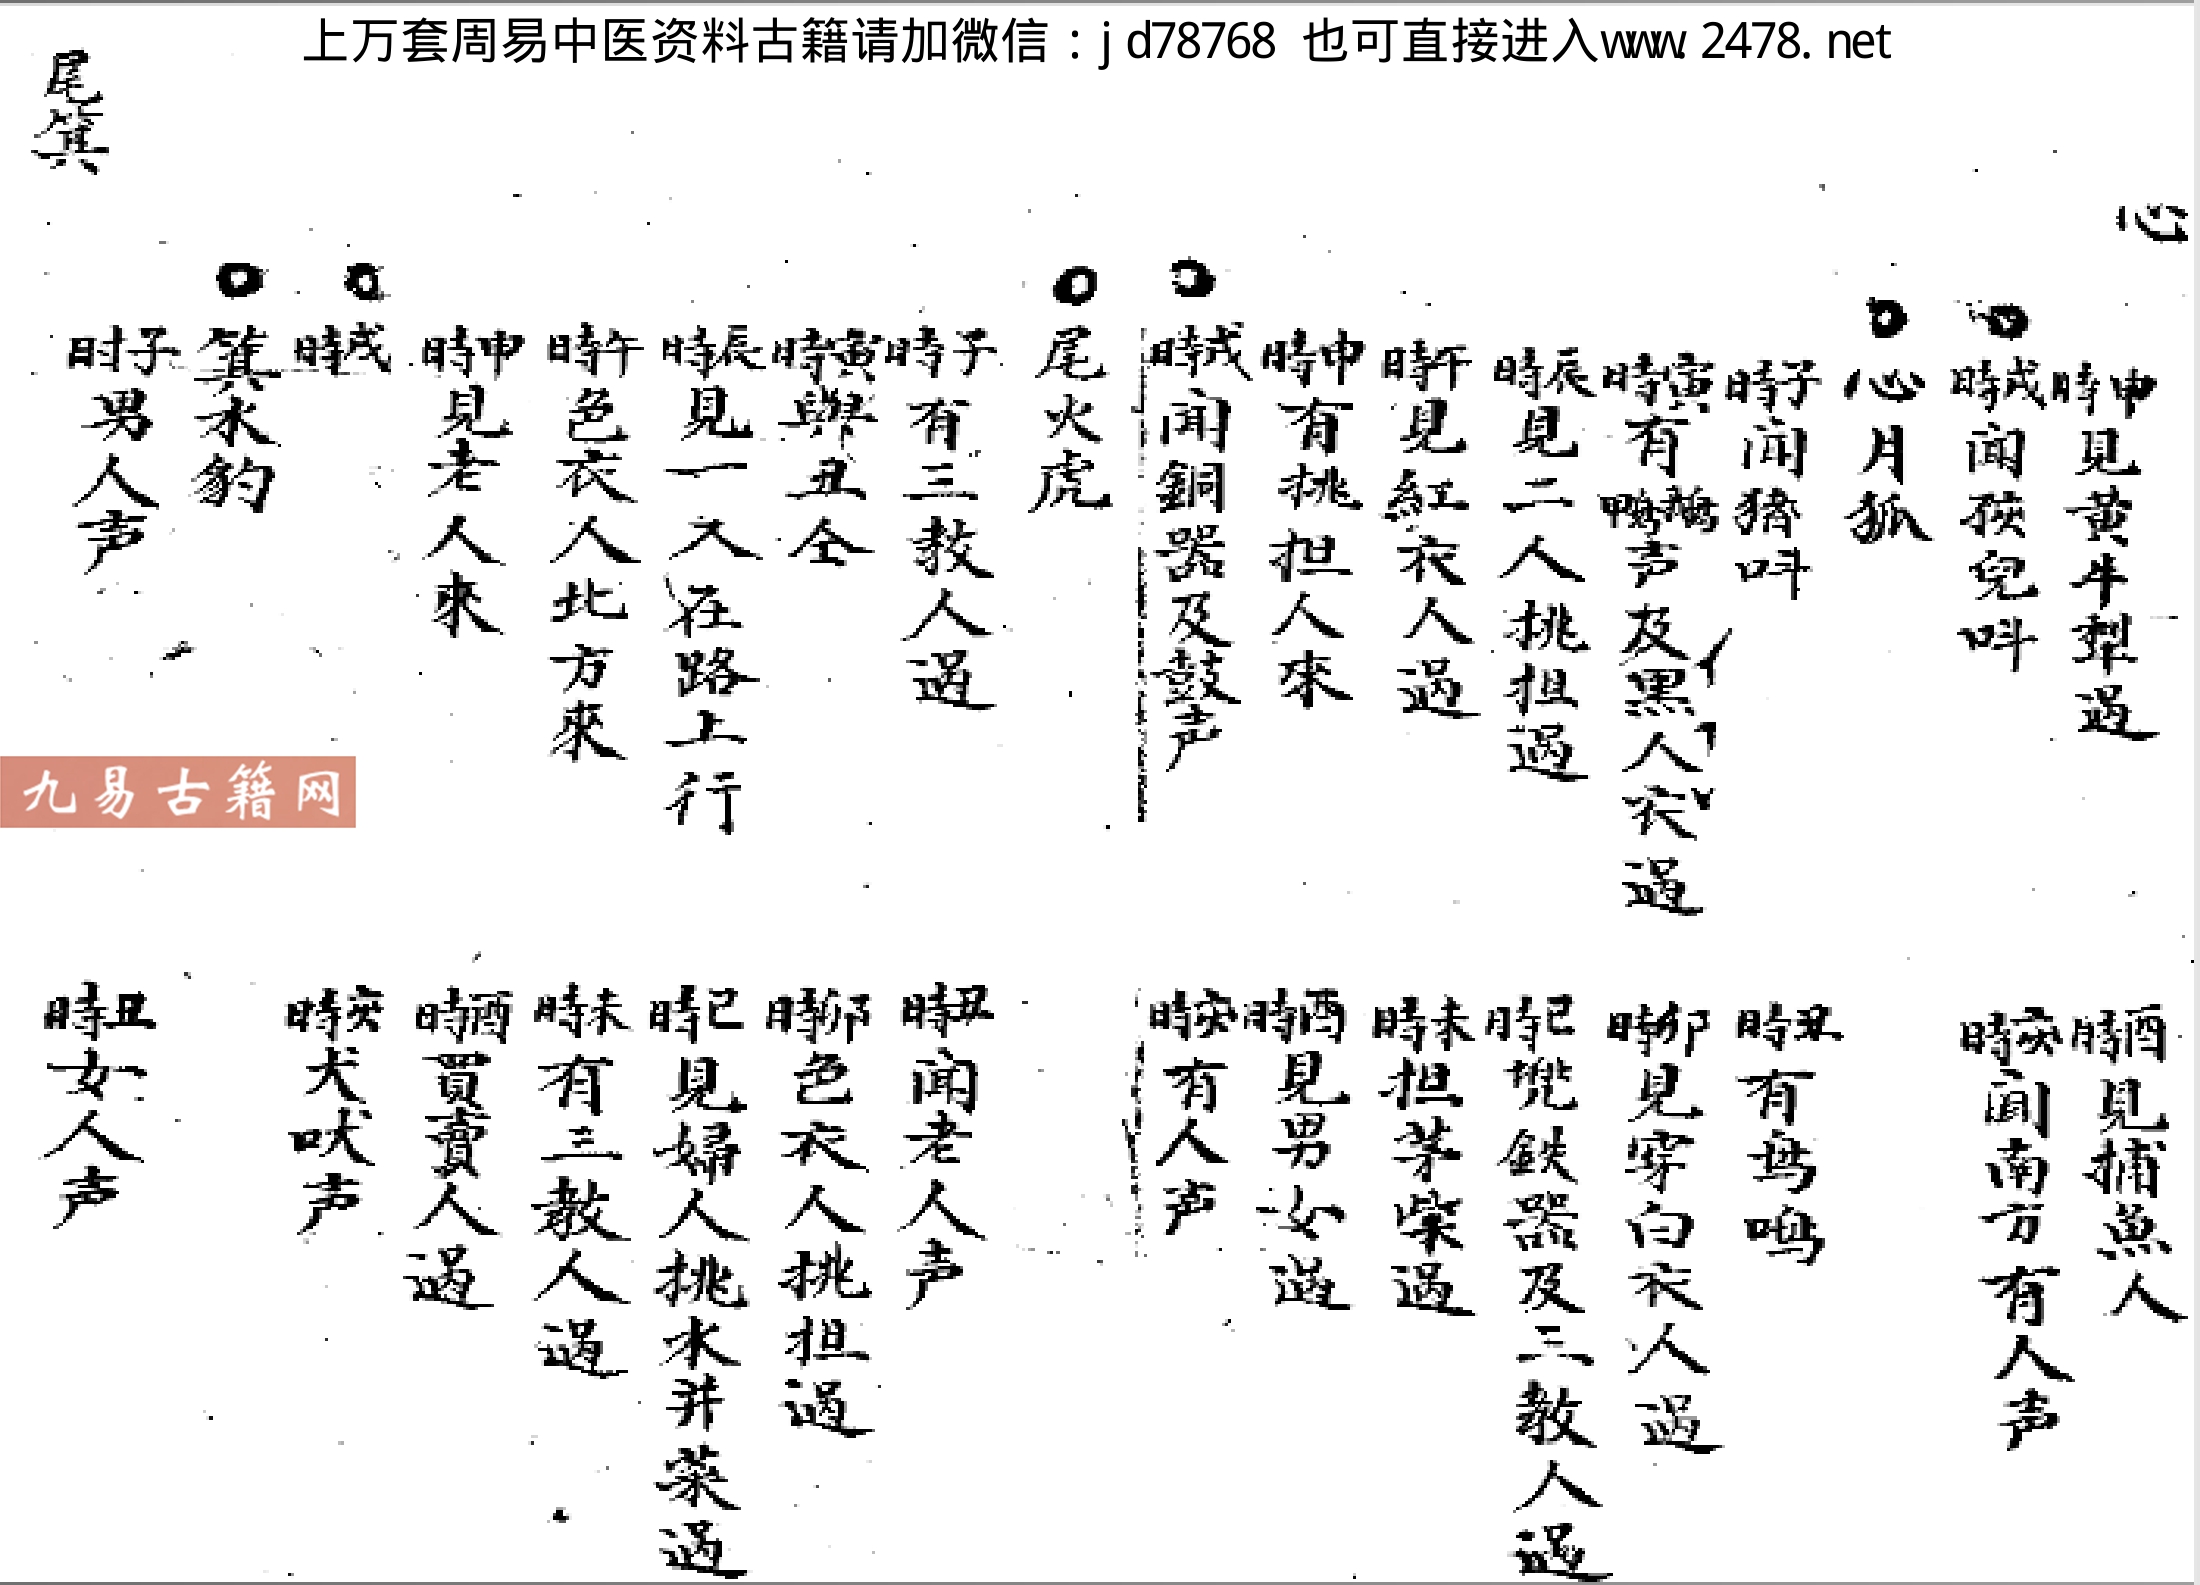 上万套周易中医资料古籍请加微信：jd78768 也可直接进入www.2478.net
心
申時見黄牛犁過
酉時見捕魚人
戌時闻孩兒呌
亥時闻南方有人声
心月狐
子時闻猪呌
丑時有鸟鳴
寅時有鵝鴨声及黑人衣過
卯時見穿白衣人過
辰時見二人挑担過
巳時 鉄器及三教人過
午時見紅衣人過
未時担茅柴過
申時有挑担人來
酉時見男女過
戌時闻銅器及鼓声
亥時有人声
尾火虎
子時有三教人過
丑時闻老人声
寅時與丑仝
卯時色衣人挑担過
辰時見一人在路上行
巳時見婦人挑水并菜過
午時色衣人北方來
未時有三教人過
申時見老人來
酉時買賣人過
戌時
亥時犬吠声
箕水豹
子时男人声
丑時女人声
尾箕
九易古籍网